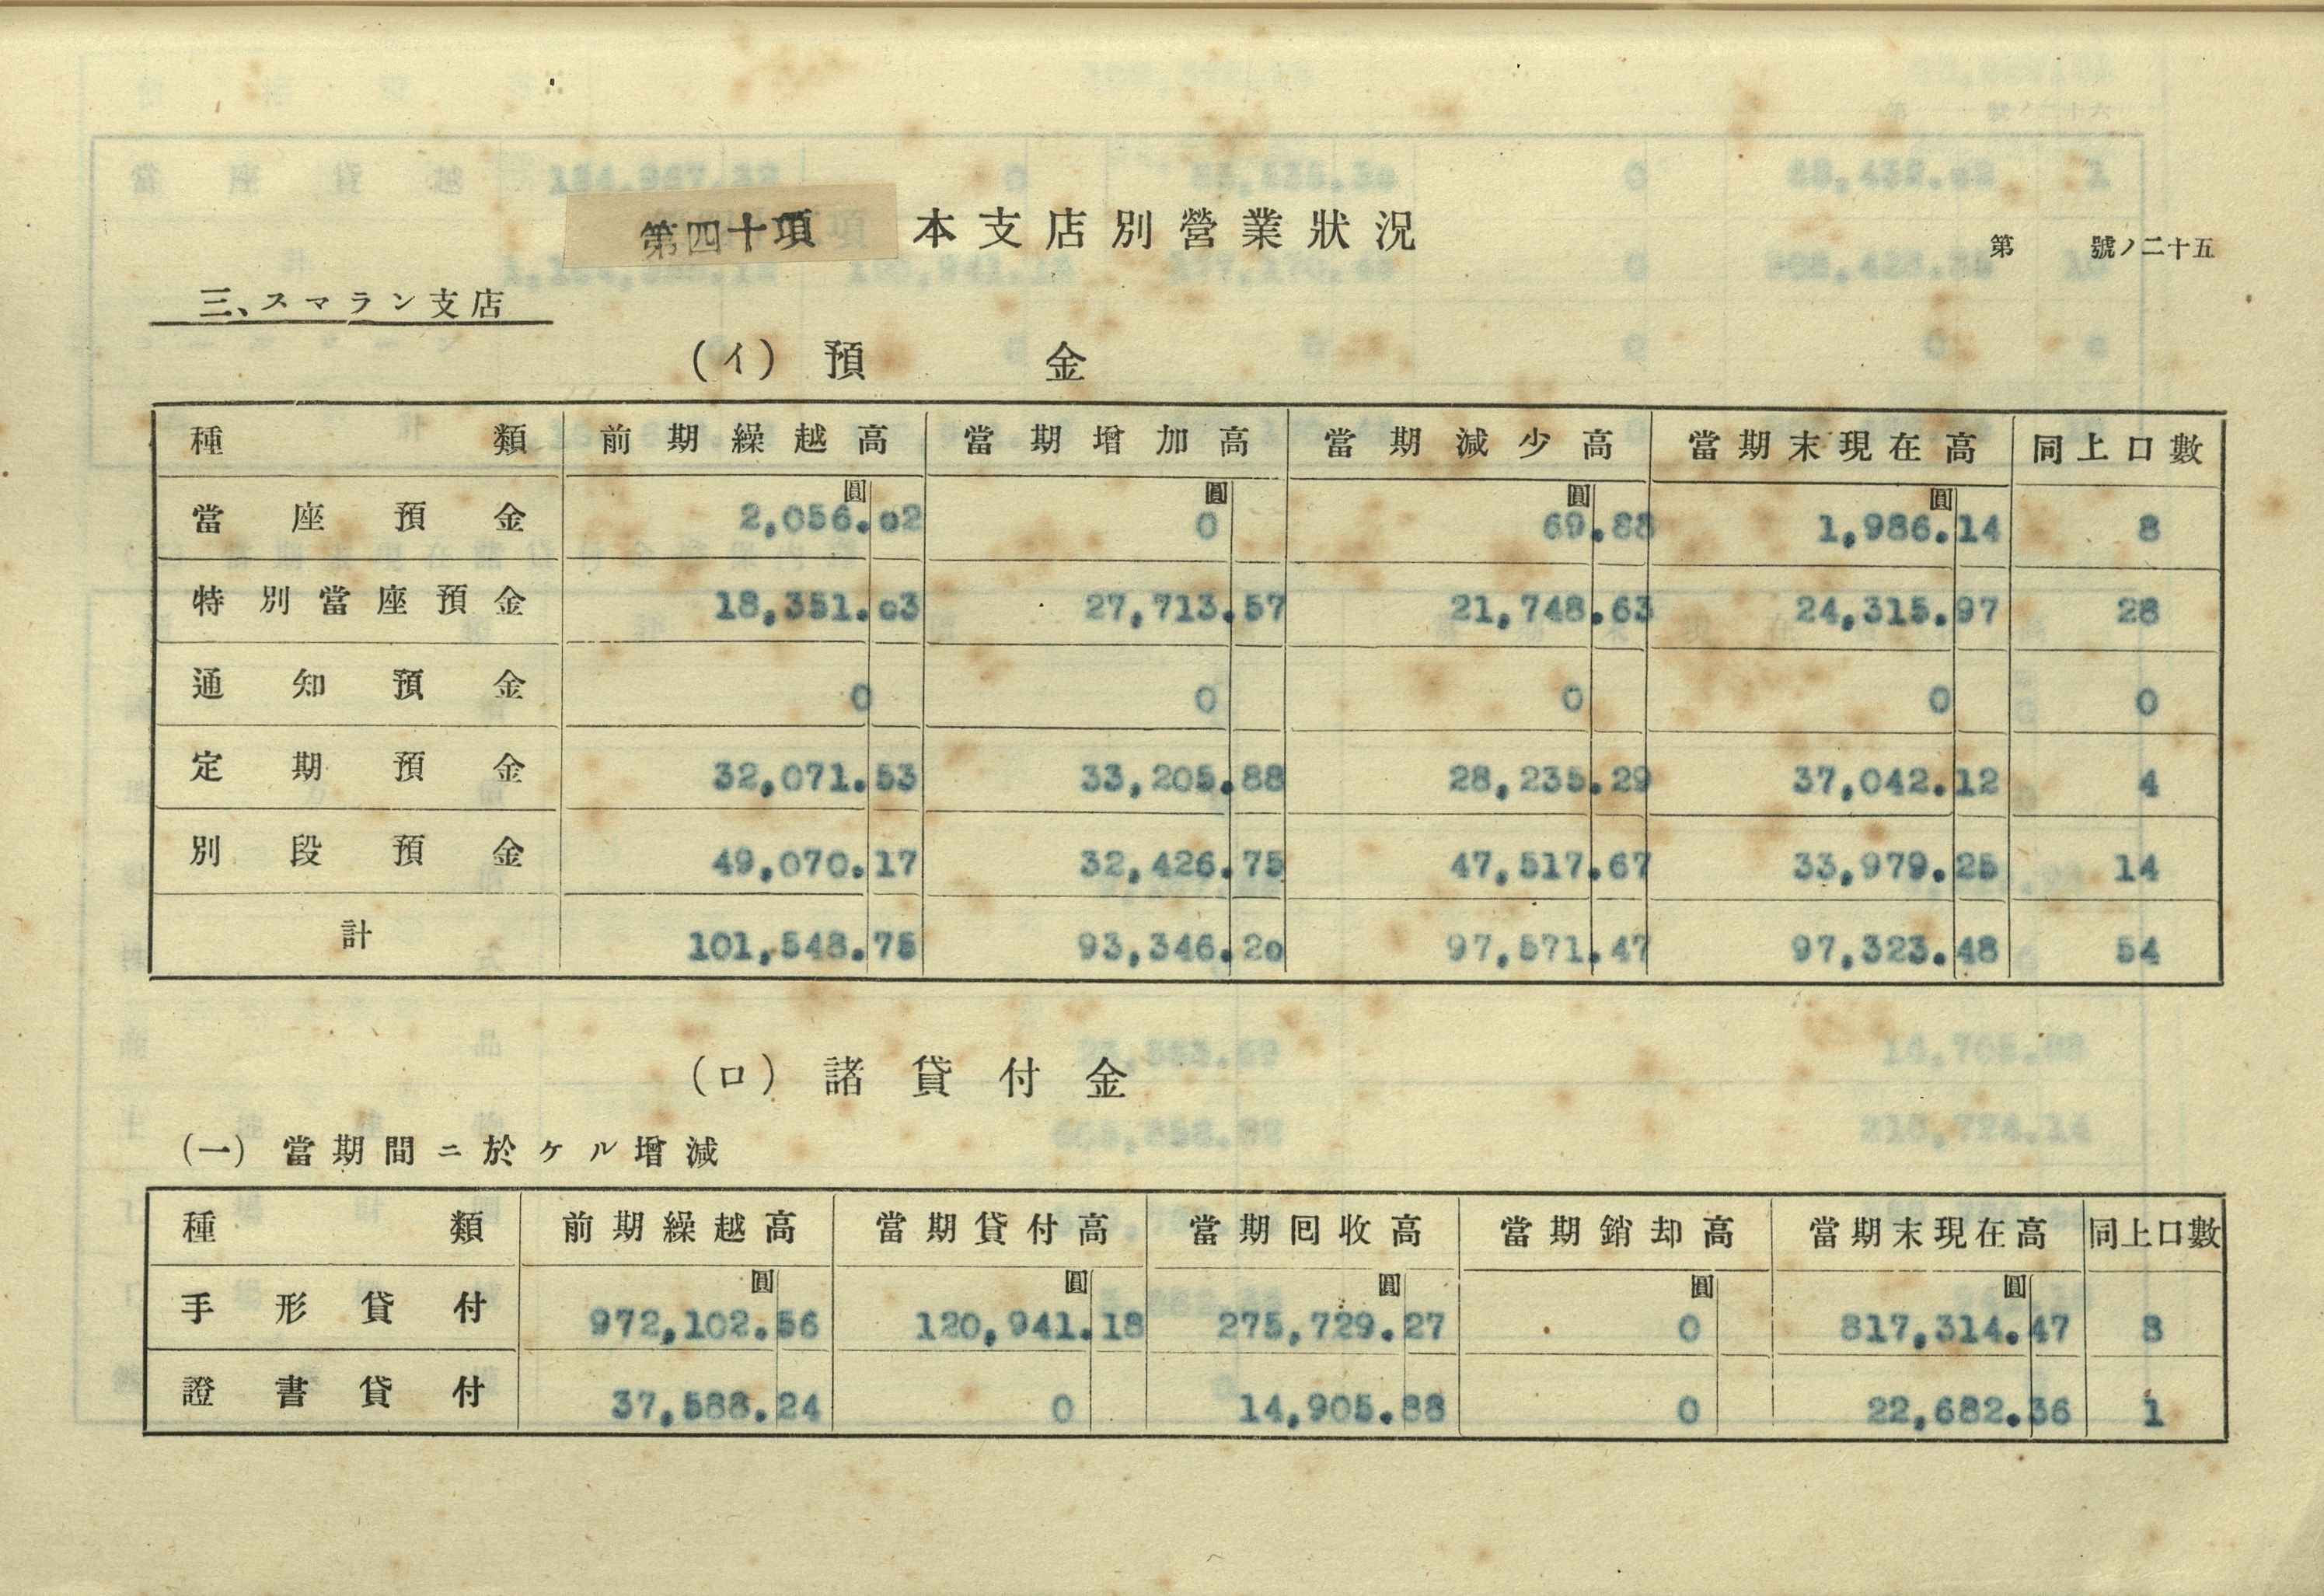 第四十項 本支店別營業狀況
第 號ノ二十五
三、スマラン支店
(イ) 預 金
種類 前期繰越高 當期增加高 當期減少高 當期末現在高 同上口數
圓 圓 圓 圓
當座預金 2,056.02 0 69.88 1,986.14 8
特別當座預金 18,351.03 27,713.57 21,748.63 24,315.97 28
通知預金 0 0 0 0 0
定期預金 32,071.53 33,205.88 28,235.29 37,042.12 4
別段預金 49,070.17 32,426.75 47,517.67 33,979.25 14
計 101,548.75 93,346.20 97,571.47 97,323.48 54
(ロ) 諸貸付金
(一) 當期間ニ於ケル增減
種類 前期繰越高 當期貸付高 當期囘收高 當期銷却高 當期末現在高 同上口數
圓 圓 圓 圓 圓
手形貸付 972,102.56 120,941.18 275,729.27 0 817,314.47 8
證書貸付 37,588.24 0 14,905.88 0 22,682.36 1